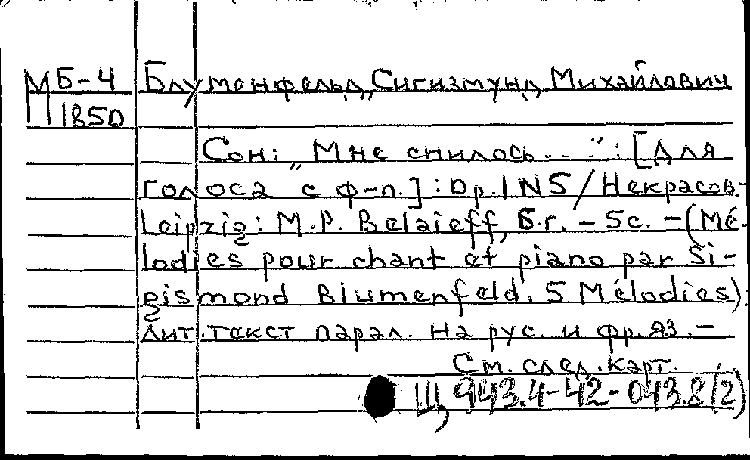 МБ-4 Блуменфельд, Сигизмунд Михайлович
М 1850
Сон: "Мне снилось...": [Для
голоса с ф-п.]: Op. 1 N5/Некрасов.
Leipzig: M.P. Belaieff, Б.г. - 5с. - (Mé-
lodies pour chant et piano par Si-
gismond Blumenfeld. 5 Mélodies).
Лит. текст парал. на рус. и фр. яз. -
См. след. карт.
Щ 943.4-42-043.8(2)